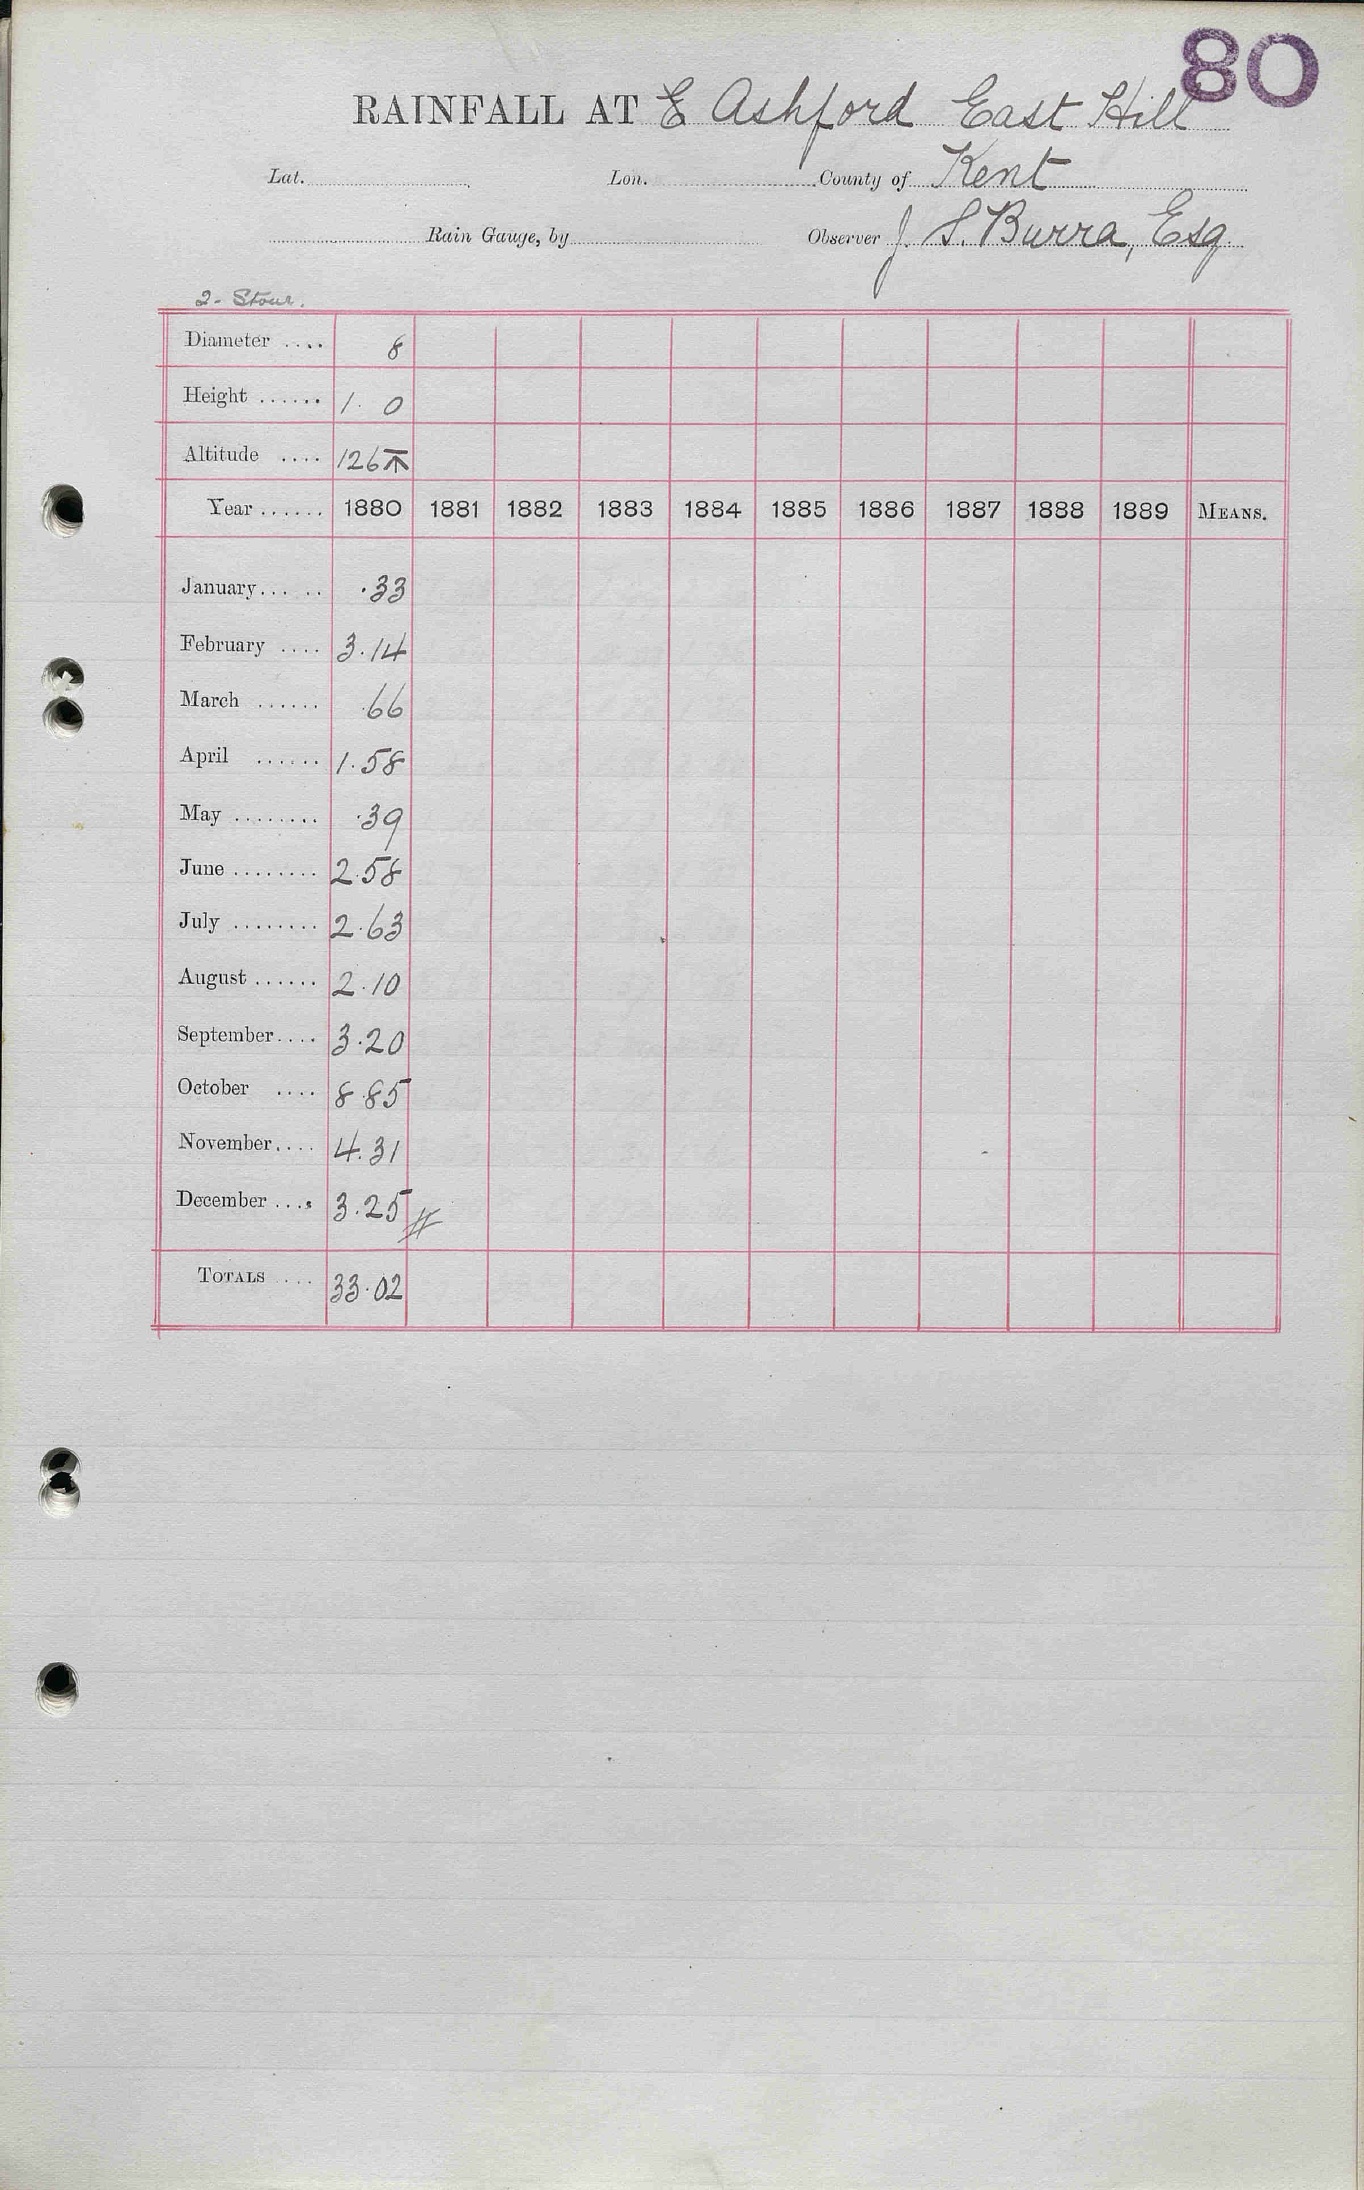 80
RAINFALL AT E Ashford East Hill
Lat. Lon. County of Kent
Rain Gauge, by Observer J. S. Burra, Esq.
2 - Stour.
Diameter .... 8
Height ...... 1. 0
Altitude .... 126
Year ...... 1880 1881 1882 1883 1884 1885 1886 1887 1888 1889 MEANS.
January ..... .33
February .... 3.14
March ...... .66
April ...... 1.58
May ........ .39
June ........ 2.58
July ........ 2.63
August ...... 2.10
September .... 3.20
October .... 8.85
November .... 4.31
December .... 3.25
TOTALS .... 33.02